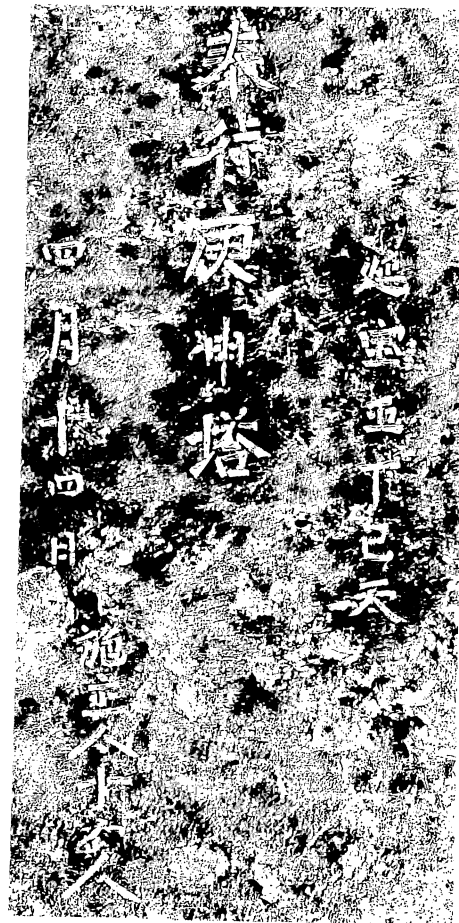 延寳五丁巳天
奉待庚申塔
四月十四日施主八十余人